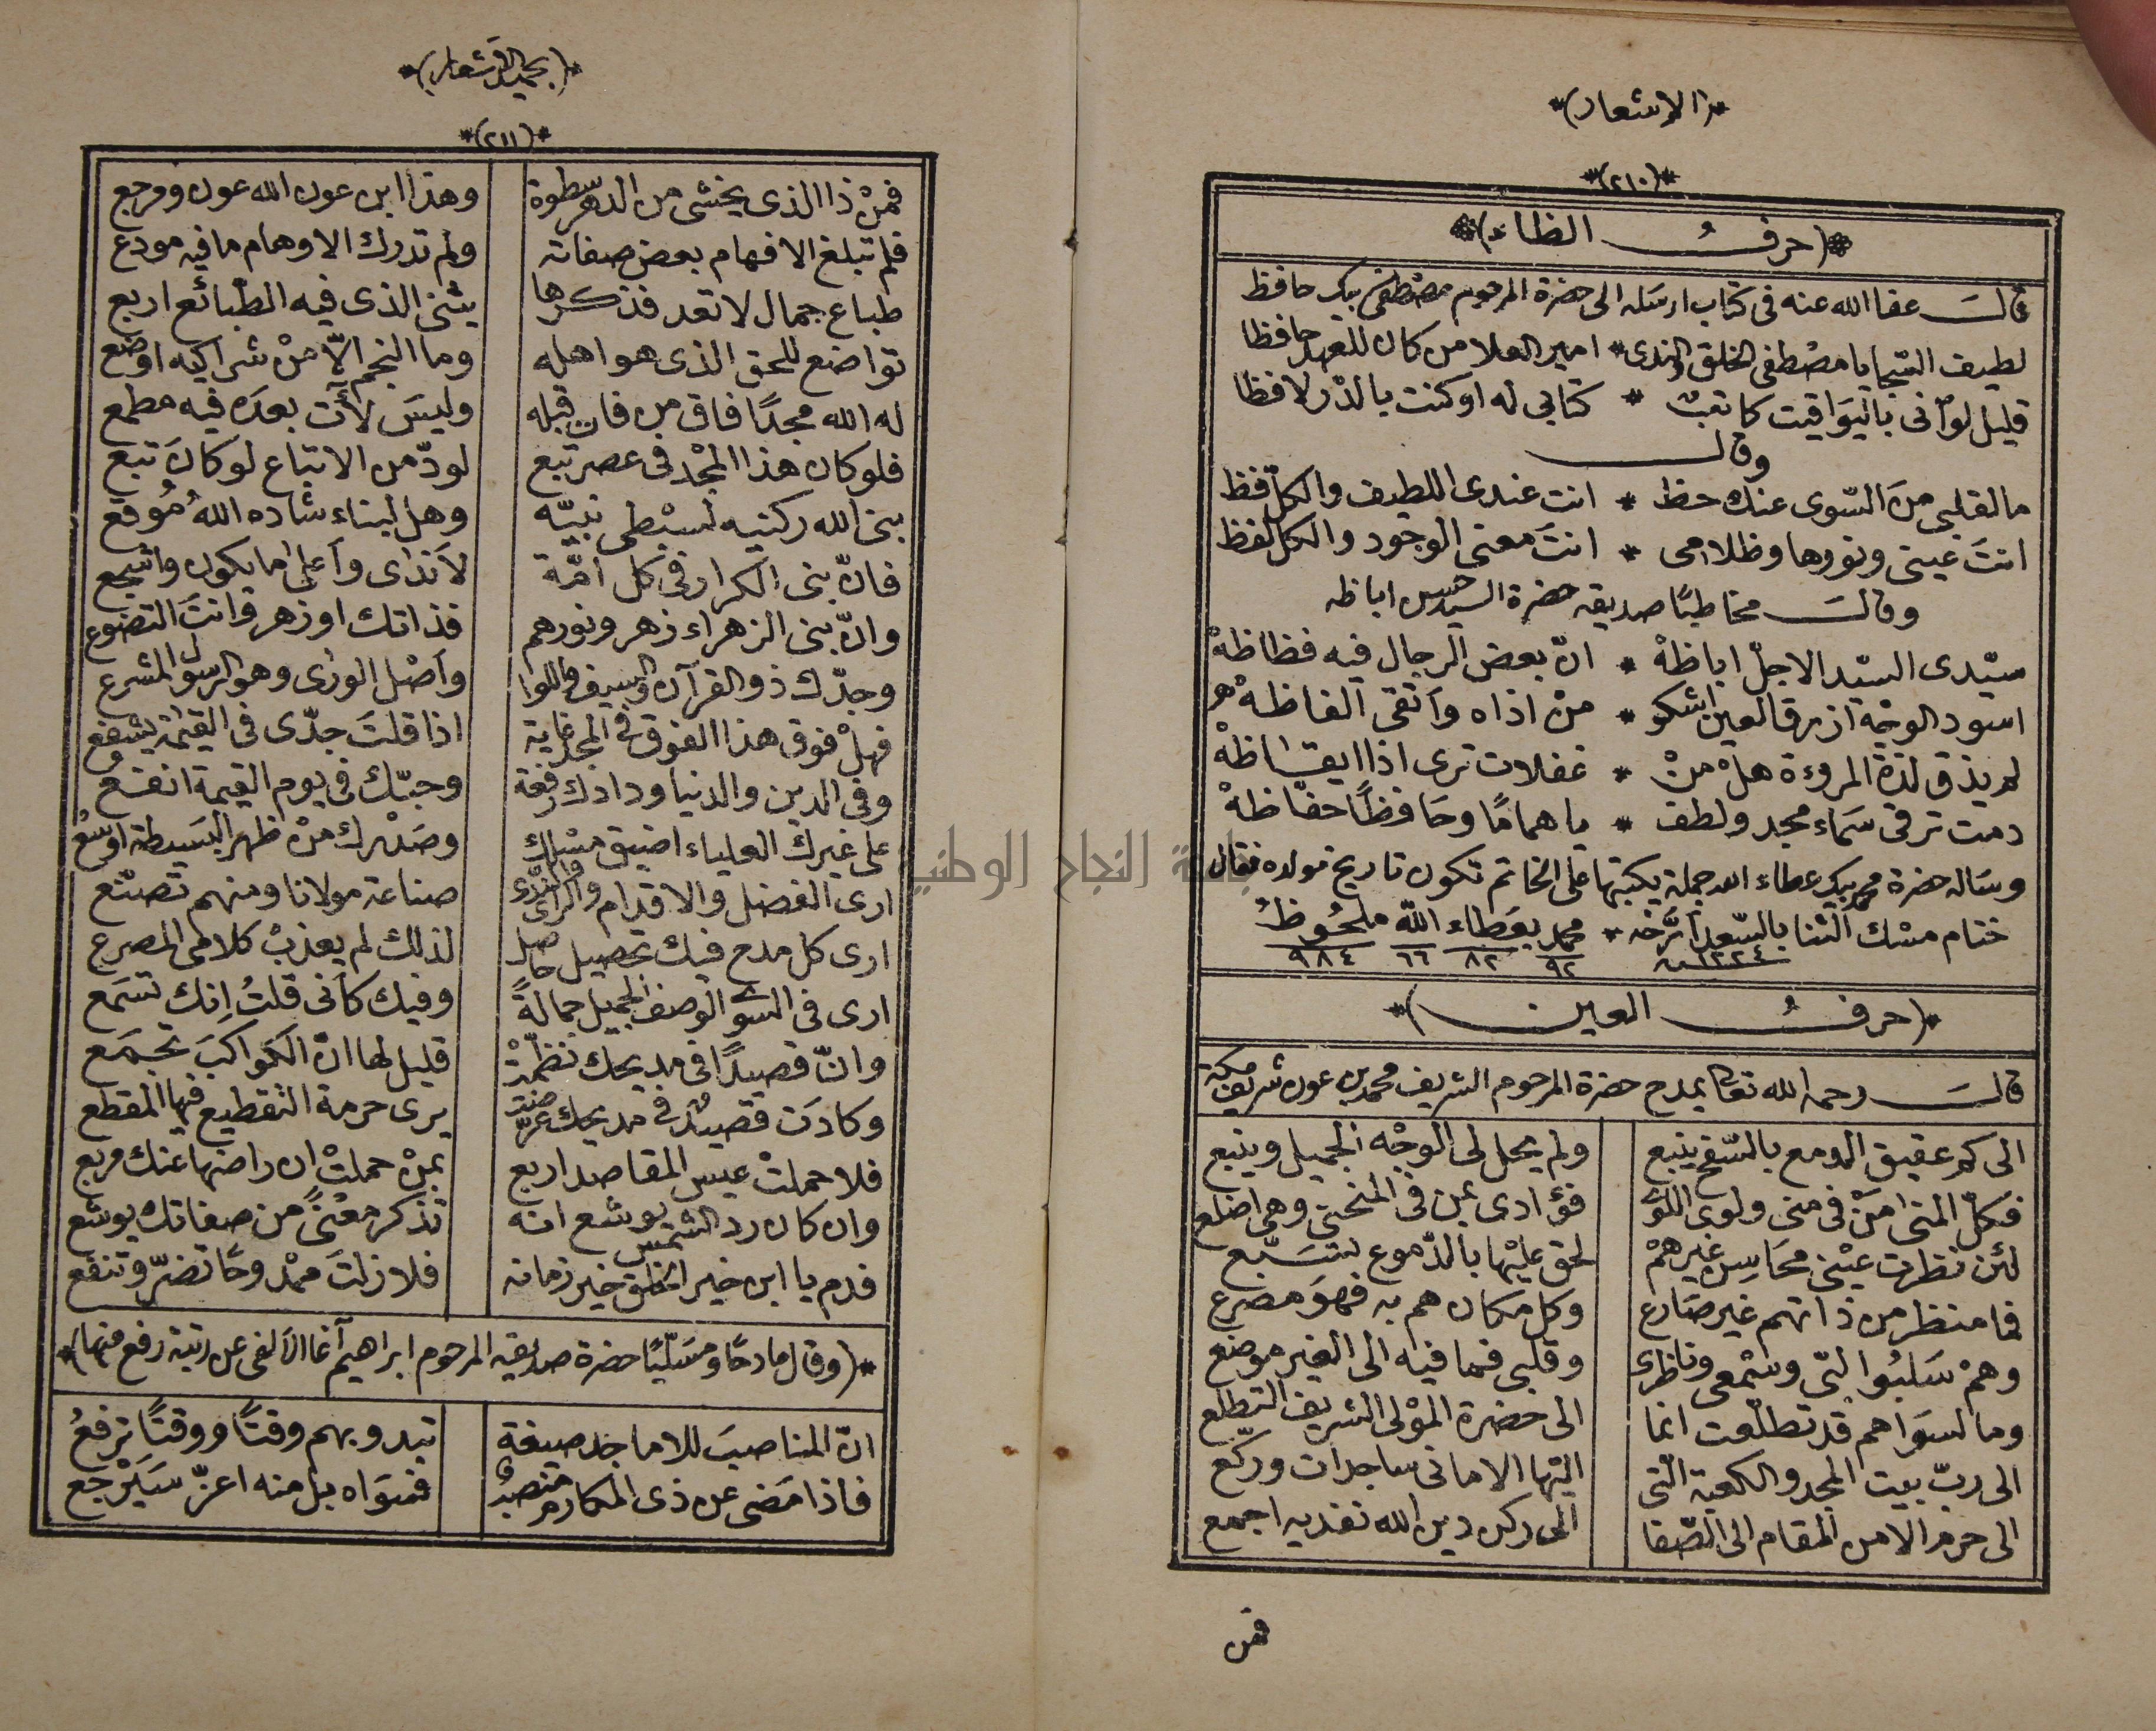 *(الاشعار)*
*(٢١٠)*
*(حرفُ الظاء)*
قالَ عفا الله عنه فى كتاب ارسَله الى حضرة المرحوم مصْطفى بيك حافظ
لطيف السّجايا مصْطفى الخلق والندى * امير العلا من كان للعهد حافظا
قليل لوْأنى باليَواقيت كاتبٌ * كتابى له او كنت بالدّر لافظا
وقال
ما لقلبى منَ السّوى عنك حظ * انت عندى اللطيف والكلّ فظ
انتَ عينى ونورها وظلامى * انتَ معنى الوجود والكل لفظ
وقالَ مخاطبًا صديقه حضرة السيد حسن اباظه
سيّدى السيّد الاجلّ اباظهْ * انّ بعض الرجال فيه فظاظهْ
اسود الوجْه ازرق العين اشكو * منْ اذاه وأتقى الفاظهْ
لم يذق لذة المروءة هلْ منْ * غفلات ترى اذا ايقاظهْ
دمت ترقى سَماء مجد ولطف * يا همامًا وحَافظًا حفّاظهْ
وسَاله حضرة محمد بيك عطاء الله جملة يكتبها على الخاتم تكون تاريخ مولده فقال
ختام مسْك الثنا بالسّعد أرَّخه * محمد بعَطاء اللّه ملحُوظُ
١٢٢٤ سنه ٩٢ ٨٢ ٦٦ ٩٨٤
*(حرفُ العين)*
قالَ رحمه الله تعالى يمدح حضرة المرحوم الشريف محمد بن عون شريف مكة
الى كم عقيق الدمع بالسّفح ينبع ولم يحل لى الوجْه الجميل وينبع
فكلّ المنى امَنْ فى منى ولوى اللوى فؤادى بمن فى المنحنى وهى اضلع
لئن نظرت عيْنى محَاسِن غيرهمْ لحق عليْها بالدّموع لتسَبّع
فما منظر من ذاتهم غير صَارع وكل مكان هم به فهوَ مصرع
وهمْ سَلبُوا لبّى وسَمْعى وناظرى وقلبى فما فيه الى الغير موضع
وما لسوَاهم قد تطلّعت انما الى حضرة الموْلى الشريف التطلع
الى ربّ بيت المجد والكعبة الّتى اليْها الامانى ساجدات وركّع
الى حرم الامن المقام الى الصّفا الى ركن دين الله نفديه اجمع
فمن
*(بجميل الاشعار)*
*(٢١١)*
فمنْ ذا الذى يخشى من الدهر سطوة وهذا ابن عون الله عون ومرجع
فلم تبلغ الافهام بعض صفاته ولم تدرك الاوهام ما فيه مودع
طباع جمال لا تعد فذكرها يثنى الذى فيه الطّبائع اربع
تواضع للحق الذى هو اهله وما النجم الّا منْ شراكيه اوضع
له الله مجدًا فاق من فات قبله وليسَ لأت بعدَه فيه مطمع
فلو كان هذا المجْد فى عصر تبع لودّ من الاتباع لو كانَ تبع
بنى الله ركنيه لسبْطى نبيّه وهل لبناء شاده اللهُ مُوقع
فانّ بنى الكرار فى كل امّة لأندى وأعلى ما يكون واشجع
وانّ بنى الزهراء زهر ونورهم فذاتك او زهر فانتَ التضوع
وجدّك ذو القرآن والسيف واللوا وأصْل الورى وهو الرسول المشرع
فهلْ فوق هذا الفوق فى المجد غاية اذا قلتَ جدّى فى القيمَة يشفع
وفى الدين والدنيا ودادك رفعة وحبّك فى يوم القيمة انفع
على غيرك العلياء اضيق مسْلك وصَدْرك منْ ظهر البَسيطة اوسعْ
ارى الفضل والاقدام والرأى والندى صناعة مولانا ومنهم تصنّع
ارى كل مدح فيك تحصيل حاصل لذلك لم يعذبْ كلامى المصرع
ارى فى السوى الوصف الجميل جمالةً وفيك كأنى قلتُ اِنك تسَمع
وانّ قصيدًا فى مديحك نظّمتْ قليل لها انّ الكوَاكبَ تجمَع
وكادَت قصيدٌ فى مديحك عزّ صنتها يرى حرمة التقطيع فيها المقطع
فلا حملتْ عيس المقاصد اربع بمنْ حملتْ ان راضها عنك مربع
وان كان رد الشمس يوشع انه تذكر معْنًى من صفاتك يوشع
فدم يا ابن خير الخلق خير زمانه فلا زلتَ ممْدوحًا تضرّ وتنفع
*(وقال مادحًا ومسَلّيًا حضرة صديقه المرحوم ابراهيم آغا الألفى عن رتبة رفع منها)*
انّ المناصبَ للاماجد صيغة تبدو بهم وقتًا ووقتًا ترفعُ
فاذا مَضى عن ذى المكارم منصبٌ فسوَاه بل منه اعزّ سَيَرْجع
جامعة النجاح الوطنية